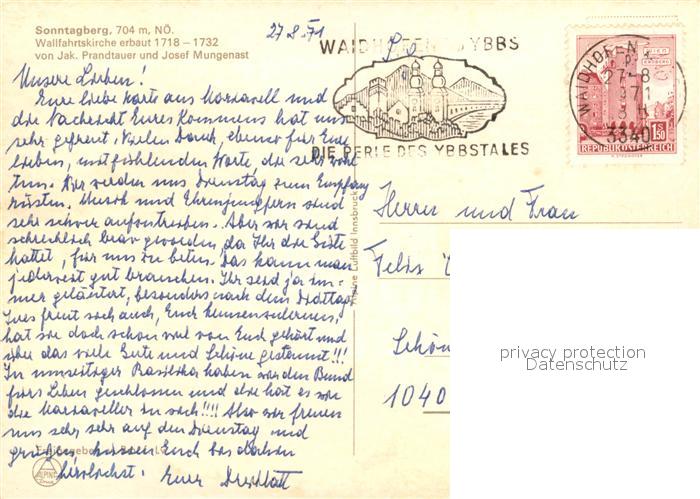 Sonntagberg, 704 m, NÖ.
Wallfahrtskirche erbaut 1718 – 1732
von Jak. Prandtauer und Josef Mungenast
27.8.71
WAIDHOFEN YBBS
DIE PERLE DES YBBSTALES
WAIDHOFEN
27-8
1971
3340
WIEN
1.50
REPUBLIK ÖSTERREICH
Unsere Lieben!
Eure liebe Karte aus Mariazell und
die Nachricht Eures Kommens hat uns
sehr gefreut. Vielen Dank, ebenso für Eure
lieben, mitfühlenden Worte, die sehr wohl
tun. Wir werden uns Dienstag zum Empfang
rüsten. Musik und Ehrenjungfern sind
sehr schwer aufzutreiben. Aber wir sind
schrecklich brav geworden, da Ihr die Güte
hattet, für uns zu beten. Das kann man
jederzeit gut brauchen. Ihr seid ja im-
mer geläutert, besonders nach dem
freut sich auch, Euch kennenzulernen,
hat sie doch schon viel von Euch gehört und
über das viele Gute und Schöne gestaunt!!!
In Basilika haben wir den Bund
fürs Leben geschlossen und die hat es wie
die Mariazeller in sich!!!! Also wir freuen
uns sehr auf den Dienstag und
grüßen, Euch bis dahin
herzlichst. Eure
Alpine Luftbild Innsbruck
ALPINE
Herrn und Frau
Felix
Schön
1040
privacy protection
Datenschutz